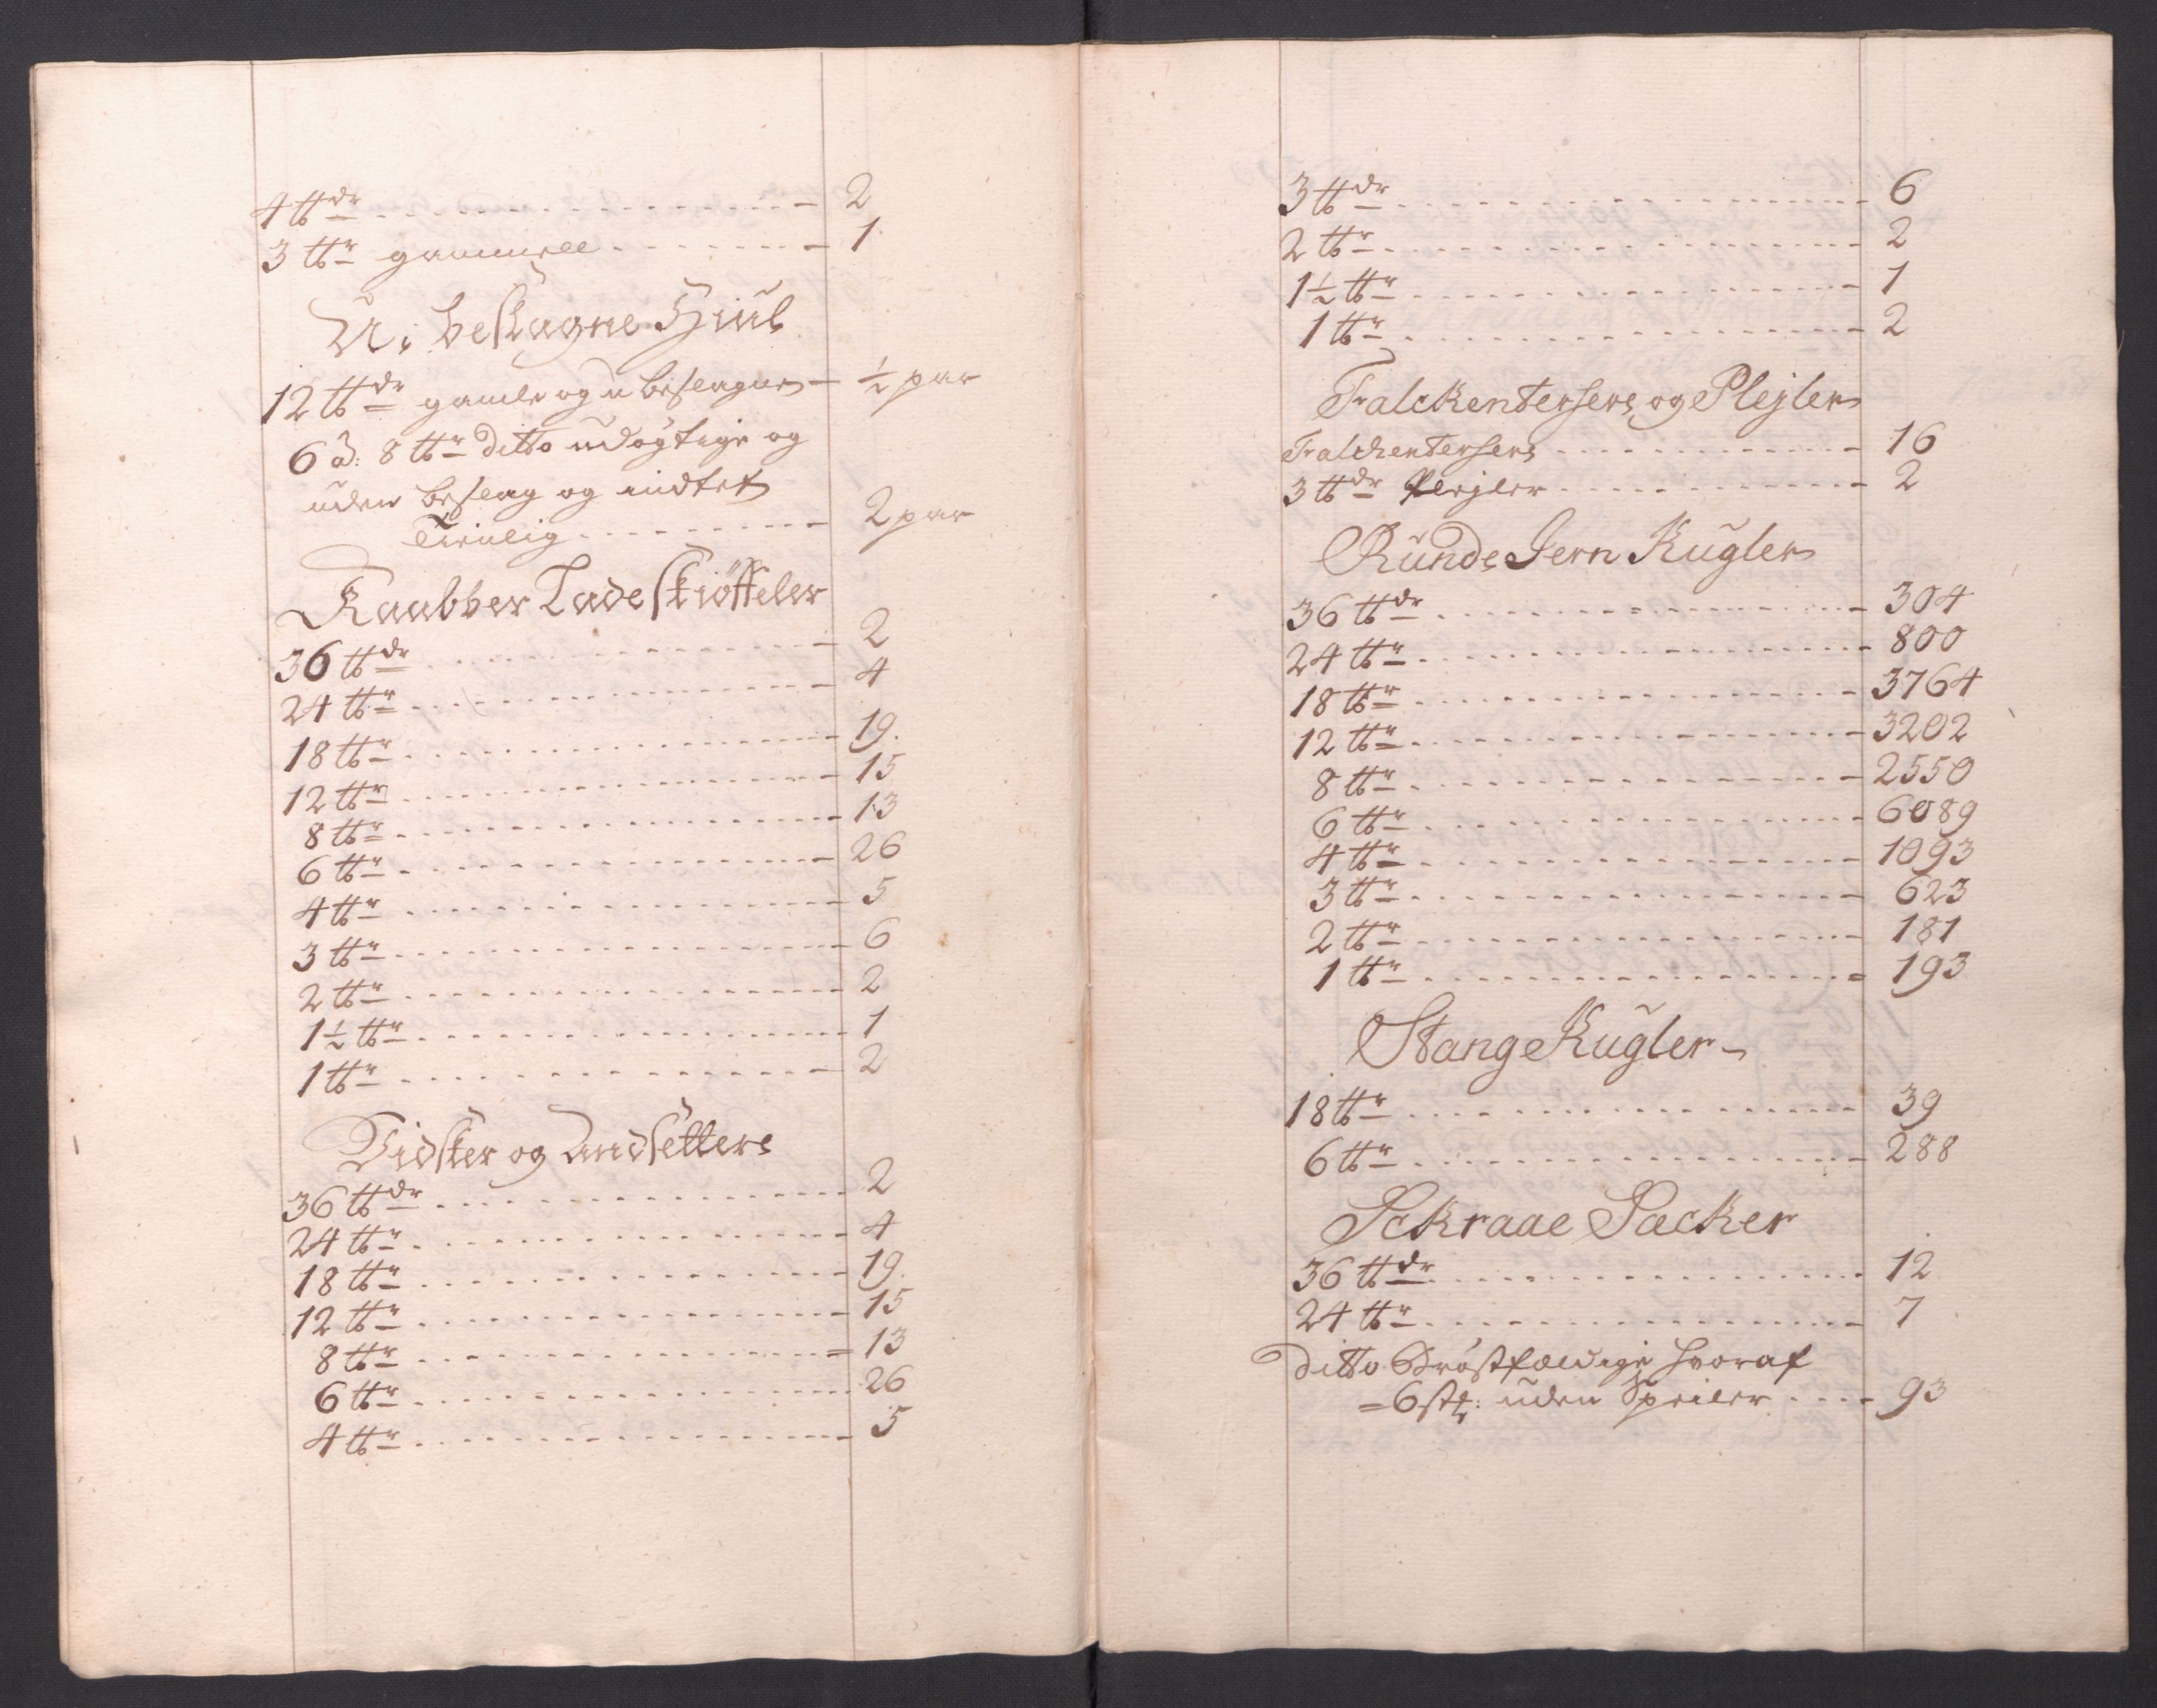 4 ℔dr 2
3 ℔r gammell 1
U: beslagne Hiül
12 ℔dr gamle og u beslagne ½ par
6 à: 8 ℔r ditto udögtige og
uden beslag og indtet
Tienlig 2 par
Kaabber Ladeskiöffeler
36 ℔dr 2
24 ℔r 4
18 ℔r 19.
12 ℔r 15
8 ℔r 13
6 ℔r 26
4 ℔r 5
3 ℔r 6
2 ℔r 2
1½ ℔r 1
1 ℔r 2
Vidsker og Andsettere
36 ℔dr 2
24 ℔r 4
18 ℔r 19.
12 ℔r 15
8 ℔r 13
6 ℔r 26
4 ℔r 5
3 ℔dr 6
2 ℔r 2
1½ ℔r 1
1 ℔r 2
Fralckentersers og Plejler
Fralckentersers 16
3 ℔dr Plejler 2
Ründe Jern Kügler
36 ℔dr 304
24 ℔r 800
18 ℔r 3764
12 ℔r 3202
8 ℔r 2550
6 ℔r 6089
4 ℔r 1093
3 ℔r 623
2 ℔r 181
1 ℔r 193
Stange Kügler
18 ℔r 39
6 ℔r 288
Sckraae Sæcker
36 ℔dr 12
24 ℔r 7
Ditto Bröstfældige hvoraf
6 st: uden Speiler 93